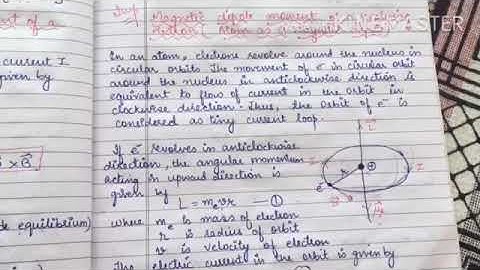 current I
given by
× B⃗
equilibrium)
Magnetic dipole moment of a
(Atom as a magnetic dipole)
STER
In an atom, electrons revolve around the nucleus in
circular orbits. The movement of e⁻ in circular orbit
around the nucleus in anticlockwise direction is
equivalent to flow of current in the orbit in
clockwise direction. Thus, the orbit of e⁻ is
considered as tiny current loop.
If e⁻ revolves in anticlockwise
direction, the angular momentum
acting in upward direction is
given by
L = mₑvr — ①
where mₑ is mass of electron
r is radius of orbit
v is velocity of electron
The electric current in the orbit is given by
L
I
r
+
e⁻
I